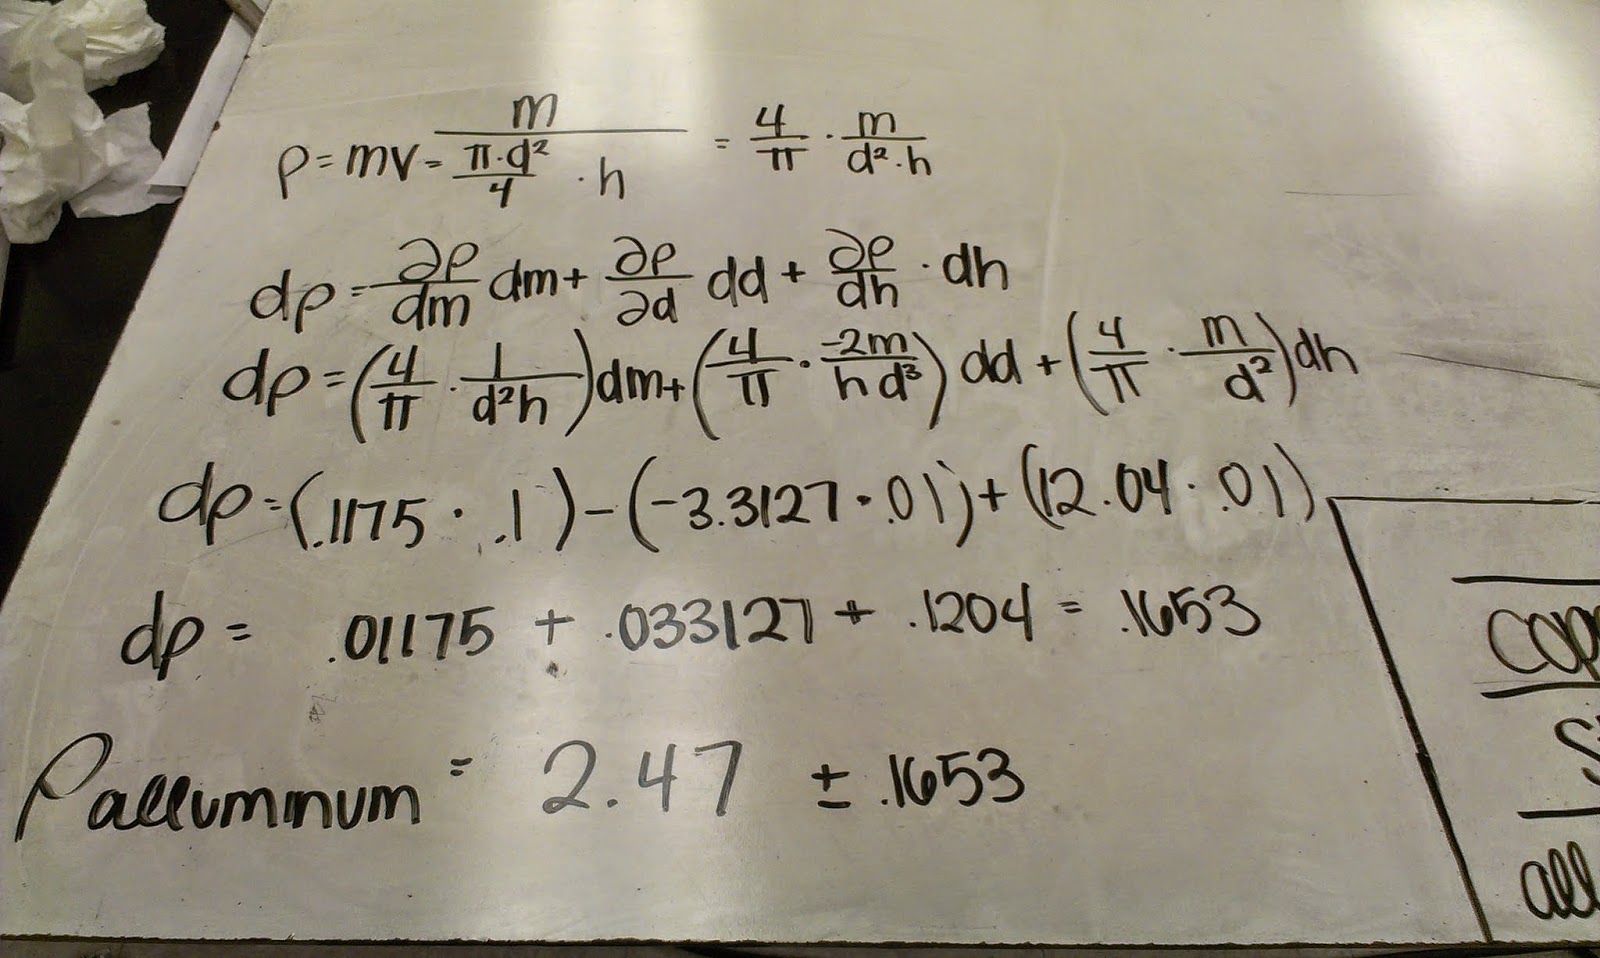 ρ = mv = m / (π·d²/4 · h) = 4/π · m/(d²·h)
dρ = ∂ρ/dm dm + ∂ρ/∂d dd + ∂ρ/dh · dh
dρ = (4/π · 1/(d²h)) dm + (4/π · -2m/(hd³)) dd + (4/π · m/d²) dh
dρ = (.1175 · .1) - (-3.3127 · .01) + (12.04 · .01)
dρ = .01175 + .033127 + .1204 = .1653
ρ alluminum = 2.47 ± .1653
all